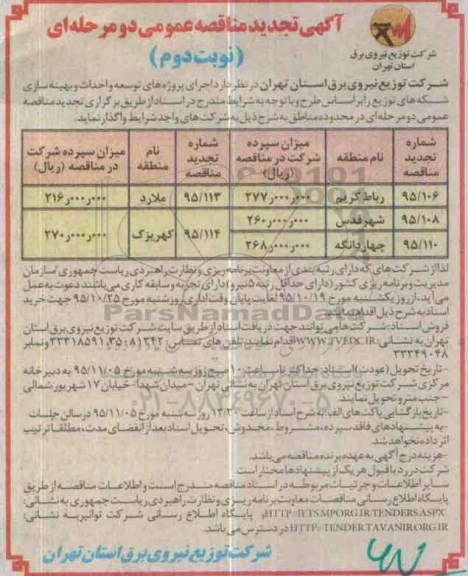 آگهی تجدید مناقصه عمومی دو مرحله ای
(نوبت دوم)
شرکت توزیع نیروی برق
استان تهران
شرکت توزیع نیروی برق استان تهران در نظر دارد اجرای پروژه های توسعه و احداث و بهینه سازی
شبکه های توزیع را بر اساس طرح و با توجه به شرایط مندرج در اسناد از طریق برگزاری تجدید مناقصه
عمومی دو مرحله ای در محدوده مناطق به شرح ذیل به شرکت های واجد شرایط واگذار نماید.
شماره تجدید مناقصه | نام منطقه | میزان سپرده شرکت در مناقصه (ریال) | شماره تجدید مناقصه | نام منطقه | میزان سپرده شرکت در مناقصه (ریال)
۹۵/۱۰۶ | رباط کریم | ۲۷۷ر۰۰۰ر۰۰۰ | ۹۵/۱۱۳ | ملارد | ۲۱۶ر۰۰۰ر۰۰۰
۹۵/۱۰۸ | شهرقدس | ۲۶۰ر۰۰۰ر۰۰۰ | ۹۵/۱۱۴ | کهریزک | ۲۷۰ر۰۰۰ر۰۰۰
۹۵/۱۱۰ | چهاردانگه | ۲۶۸ر۰۰۰ر۰۰۰
لذا از شرکت های که دارای رتبه بندی از معاونت برنامه ریزی و نظارت راهبردی ریاست جمهوری (سازمان
مدیریت و برنامه ریزی کشور (دارای حداقل رتبه ۵ نیرو) دارای تجربه و سابقه کاری می باشند دعوت به عمل
می آید، از روز یکشنبه مورخ ۹۵/۱۰/۱۹ لغایت پایان وقت اداری روز شنبه مورخ ۹۵/۱۰/۲۵ جهت خرید
اسناد به شرح ذیل اقدام نمایند.
فروش اسناد: شرکت ها می توانند جهت دریافت اسناد از طریق سایت شرکت توزیع نیروی برق استان
تهران به نشانی: WWW.TVEDC.IR اقدام نمایند. تلفن های تماس: ۳۵۰۸۱۳۴۲، ۳۳۳۱۸۵۹۱ و نمابر
۳۳۳۴۹۰۴۸
- تاریخ تحویل (عودت) اسناد: حداکثر تا ساعت ۱۰ صبح روز سه شنبه مورخ ۹۵/۱۱/۰۵ به دبیرخانه
مرکزی شرکت توزیع نیروی برق استان تهران به نشانی تهران - میدان شهدا - خیابان ۱۷ شهریور شمالی
- جنب مترو تحویل نمایند.
- تاریخ بازگشایی پاکت های الف: به شرح اسناد از ساعت ۱۳/۳۰ روز سه شنبه مورخ ۹۵/۱۱/۰۵ در سالن جلسات
- به پیشنهادهای فاقد سپرده، مشروط، مخدوش، تحویل اسناد بعد از انقضای مدت، مطلقا ترتیب
اثر داده نخواهد شد.
- هزینه درج آگهی به عهده برنده مناقصه می باشد.
شرکت در رد یا قبول هر یک از پیشنهادها مختار است.
سایر اطلاعات و جزئیات مربوطه در اسناد مناقصه مندرج است و اطلاعات مناقصه از طریق
پایگاه اطلاع رسانی مناقصات معاونت برنامه ریزی و نظارت راهبردی ریاست جمهوری به نشانی:
HTTP://IETS.MPORG.IR/TENDERS.ASPX و پایگاه اطلاع رسانی شرکت توانیر به نشانی:
HTTP://TENDER.TAVANIR.ORG.IR در دسترس می باشد.
شرکت توزیع نیروی برق استان تهران
ParsNamadData
۰۲۱-۸۸۳۴۹۶۷۰-۵